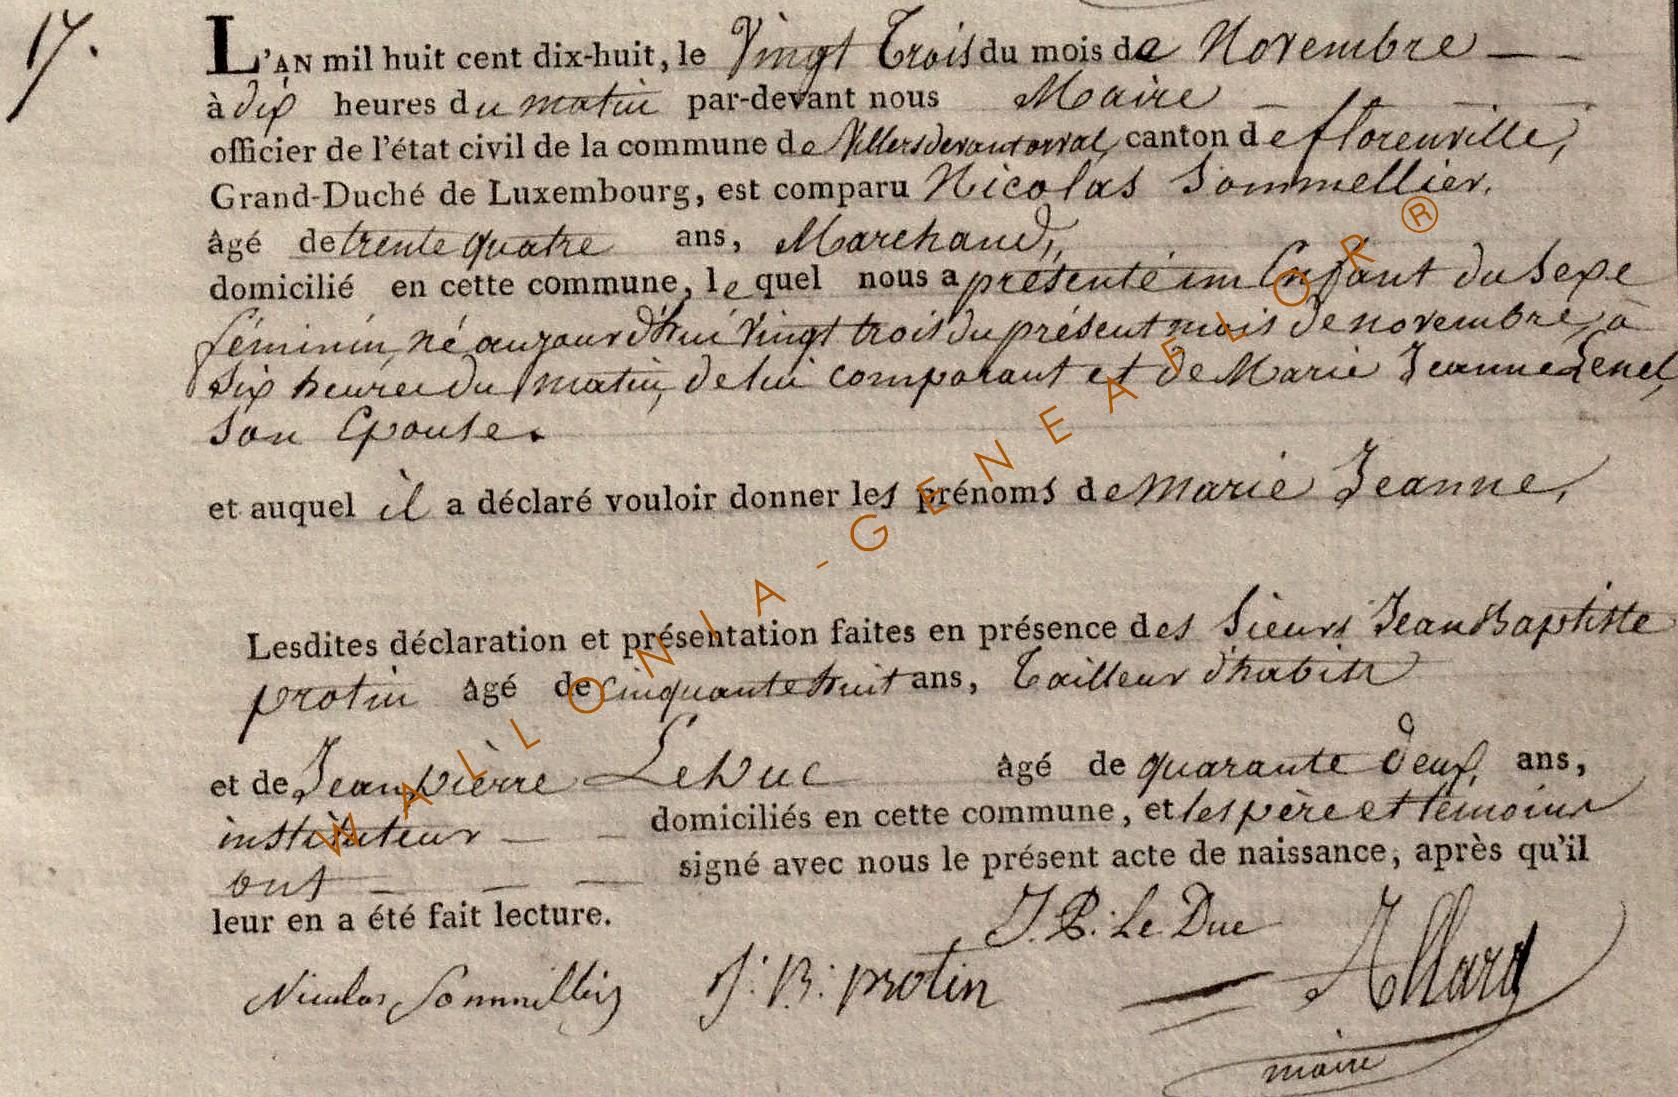 17.
L'AN mil huit cent dix-huit, le Vingt Trois du mois de Novembre
à dix heures du matin par-devant nous Maire
officier de l'état civil de la commune de Villersdevantorval, canton de florenville,
Grand-Duché de Luxembourg, est comparu Nicolas Sommellier,
âgé de trente quatre ans, Marchand,
domicilié en cette commune, lequel nous a présenté un Enfant du Sexe
féminin, né aujourd'hui Vingt trois du présent mois de novembre, à
Six heures du matin, de lui comparant et de Marie Jeanne
Son Epouse.
et auquel il a déclaré vouloir donner les prénoms de Marie Jeanne,
Lesdites déclaration et présentation faites en présence des Sieurs Jean Baptiste
protin âgé de cinquante huit ans, Tailleur d'habits
et de Jean pierre LeDuc âgé de quarante deux ans,
instituteur domiciliés en cette commune, et les père et témoins
ont signé avec nous le présent acte de naissance, après qu'il
leur en a été fait lecture.
J. P. Le Duc
Nicolas Sommillier J. B. protin Allard
maire
WALLONIA-GENEAFLOR®